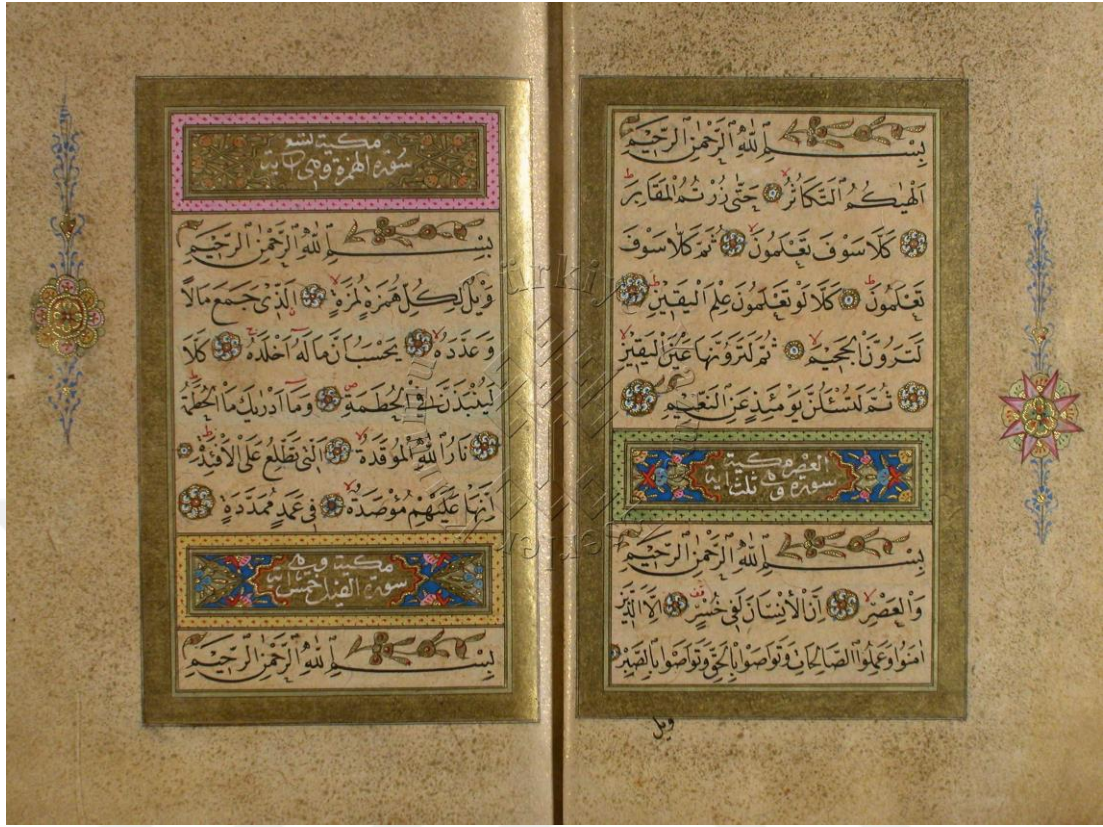 بِسْمِ اللّٰهِ الرَّحْمٰنِ الرَّحِيمِ
اَلْهٰيكُمُ التَّكَاثُرُ حَتّٰى زُرْتُمُ الْمَقَابِرَ
كَلَّا سَوْفَ تَعْلَمُونَ ثُمَّ كَلَّا سَوْفَ
تَعْلَمُونَ كَلَّا لَوْ تَعْلَمُونَ عِلْمَ الْيَقِينِ
لَتَرَوُنَّ الْجَحِيمَ ثُمَّ لَتَرَوُنَّهَا عَيْنَ الْيَقِينِ
ثُمَّ لَتُسْئَلُنَّ يَوْمَئِذٍ عَنِ النَّعِيمِ
سورة العصر مكية وهي ثلث اية
بِسْمِ اللّٰهِ الرَّحْمٰنِ الرَّحِيمِ
وَالْعَصْرِ اِنَّ الْاِنْسَانَ لَفِى خُسْرٍ اِلَّا الَّذِينَ
اٰمَنُوا وَعَمِلُوا الصَّالِحَاتِ وَتَوَاصَوْا بِالْحَقِّ وَتَوَاصَوْا بِالصَّبْرِ
ويل
سورة الهمزة مكية وهي تسع اية
بِسْمِ اللّٰهِ الرَّحْمٰنِ الرَّحِيمِ
وَيْلٌ لِكُلِّ هُمَزَةٍ لُمَزَةٍ اَلَّذِى جَمَعَ مَالًا
وَعَدَّدَهُ يَحْسَبُ اَنَّ مَالَهُ اَخْلَدَهُ كَلَّا
لَيُنْبَذَنَّ فِى الْحُطَمَةِ وَمَا اَدْرٰيكَ مَا الْحُطَمَةُ
نَارُ اللّٰهِ الْمُوقَدَةُ اَلَّتِى تَطَّلِعُ عَلَى الْاَفْئِدَةِ
اِنَّهَا عَلَيْهِمْ مُؤْصَدَةٌ فِى عَمَدٍ مُمَدَّدَةٍ
سورة الفيل مكية وهي خمس اية
بِسْمِ اللّٰهِ الرَّحْمٰنِ الرَّحِيمِ